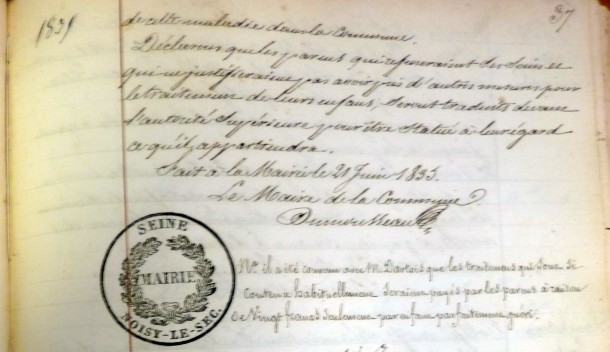 1835
37
de cette maladie dans la Commune.
Déclarons que les parens qui refuseraient des soins et
qui ne justifieraient pas avoir pris d'autres mesures pour
le traitement de leurs enfans, seront traduits devant
l'autorité Supérieure pour être Statué à leur égard
ce qu'il appartiendra.
Fait à la Mairie le 21 Juin 1835.
Le Maire de la Commune
SEINE
MAIRIE
NOISY-LE-SEC.
il a été convenu avec M. Dartois que les traitemens qui sont de
habituellement seraient payés par les parens à raison
de Vingt francs seulement par enfant parfaitement guéri.